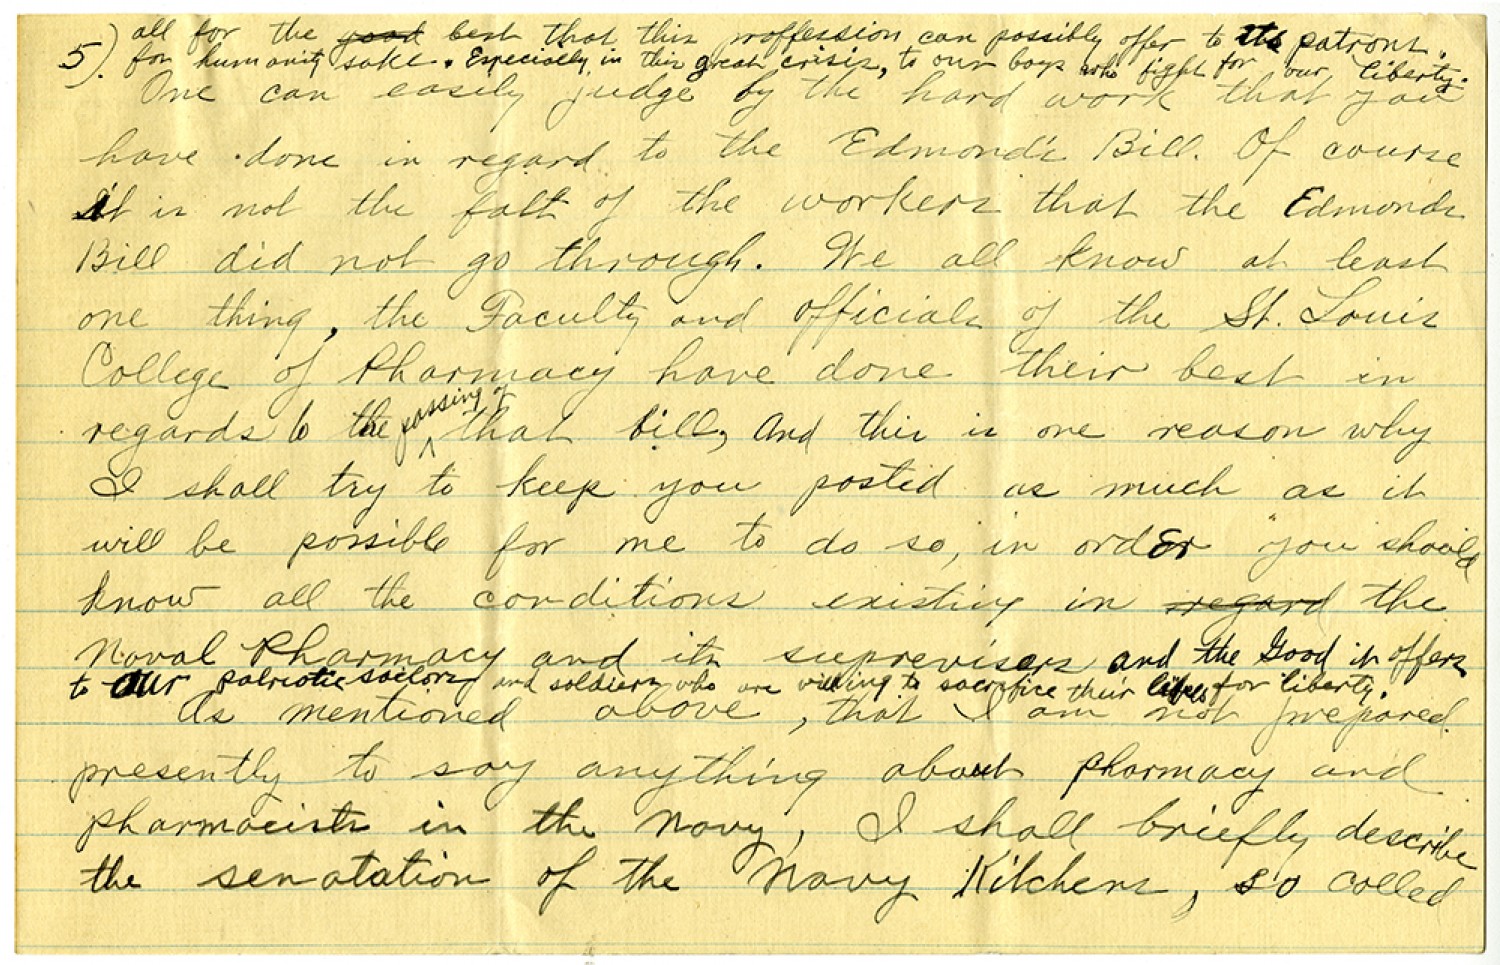 5). all for the good best that this proffession can possibly offer to its patrons.
for humanity sake. Especially in this great crisis, to our boys who fight for our liberty.
One can easily judge by the hard work that you
have done in regard to the Edmond's Bill. Of course
it is not the falt of the workers that the Edmonds
Bill did not go through. We all know at least
one thing, the Faculty and officials of the St. Louis
College of Pharmacy have done their best in
regards to the passing of that bill, And this is one reason why
I shall try to keep you posted as much as it
will be possible for me to do so, in order you should
know all the conditions existing in regard the
Naval Pharmacy and its suprevisers and the Good it offers
to our patriotic sailors and soldiers who are willing to sacrifice their lives for liberty.
As mentioned above, that I am not prepared
presently to say anything about pharmacy and
pharmacists in the Navy, I shall briefly describe
the senatation of the Navy Kitchens, so called